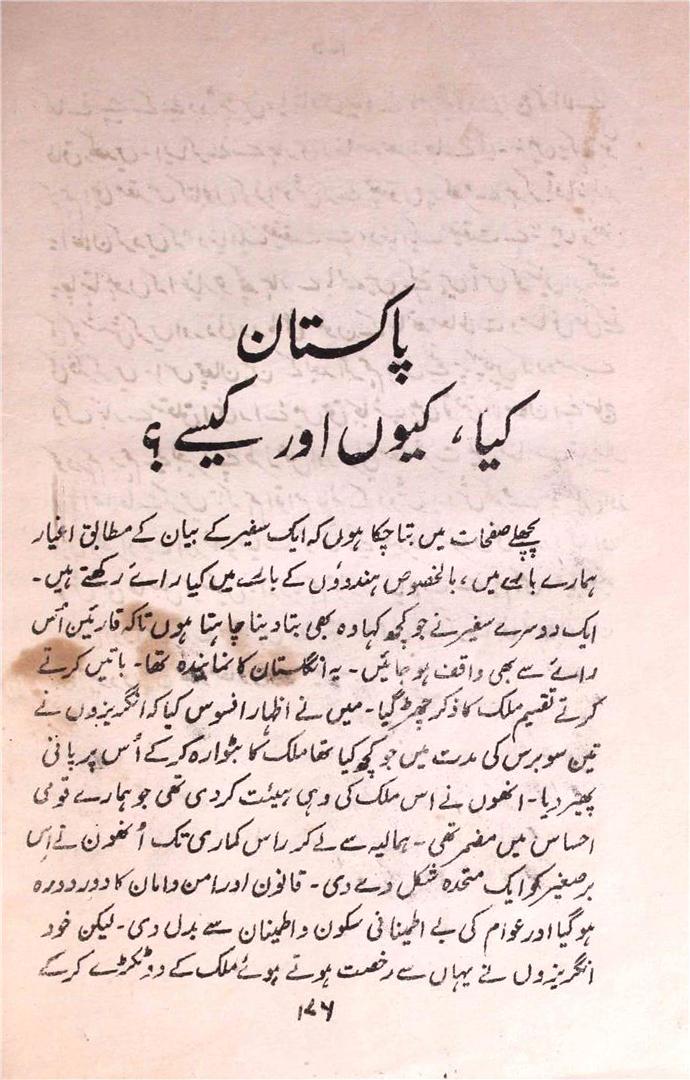 پاکستان
کیا، کیوں اور کیسے؟
پچھلے صفحات میں بتا چکا ہوں کہ ایک سفیر کے بیان کے مطابق اغیار
ہمارے بارے میں، بالخصوص ہندوؤں کے بارے میں کیا رائے رکھتے ہیں۔
ایک دوسرے سفیر نے جو کچھ کہا وہ بھی بتا دینا چاہتا ہوں تاکہ قارئین اُس
رائے سے بھی واقف ہو جائیں۔ یہ انگلستان کا نمایندہ تھا۔ باتیں کرتے
کرتے تقسیم ملک کا ذکر چھڑ گیا۔ میں نے اظہار افسوس کیا کہ انگریزوں نے
تین سو برس کی مدت میں جو کچھ کیا تھا ملک کا بٹوارہ کر کے اُس پر پانی
پھیر دیا۔ انھوں نے اس ملک کی وہی ہیئت کر دی تھی جو ہمارے قومی
احساس میں مضمر تھی۔ ہمالیہ سے لے کر راس کماری تک اُنھوں نے اِس
برصغیر کو ایک متحدہ شکل دے دی۔ قانون اور امن و امان کا دور دورہ
ہو گیا اور عوام کی بے اطمینانی سکون و اطمینان سے بدل دی۔ لیکن خود
انگریزوں نے یہاں سے رخصت ہوتے ہوئے ملک کے دو ٹکڑے کر کے
۱۷۶